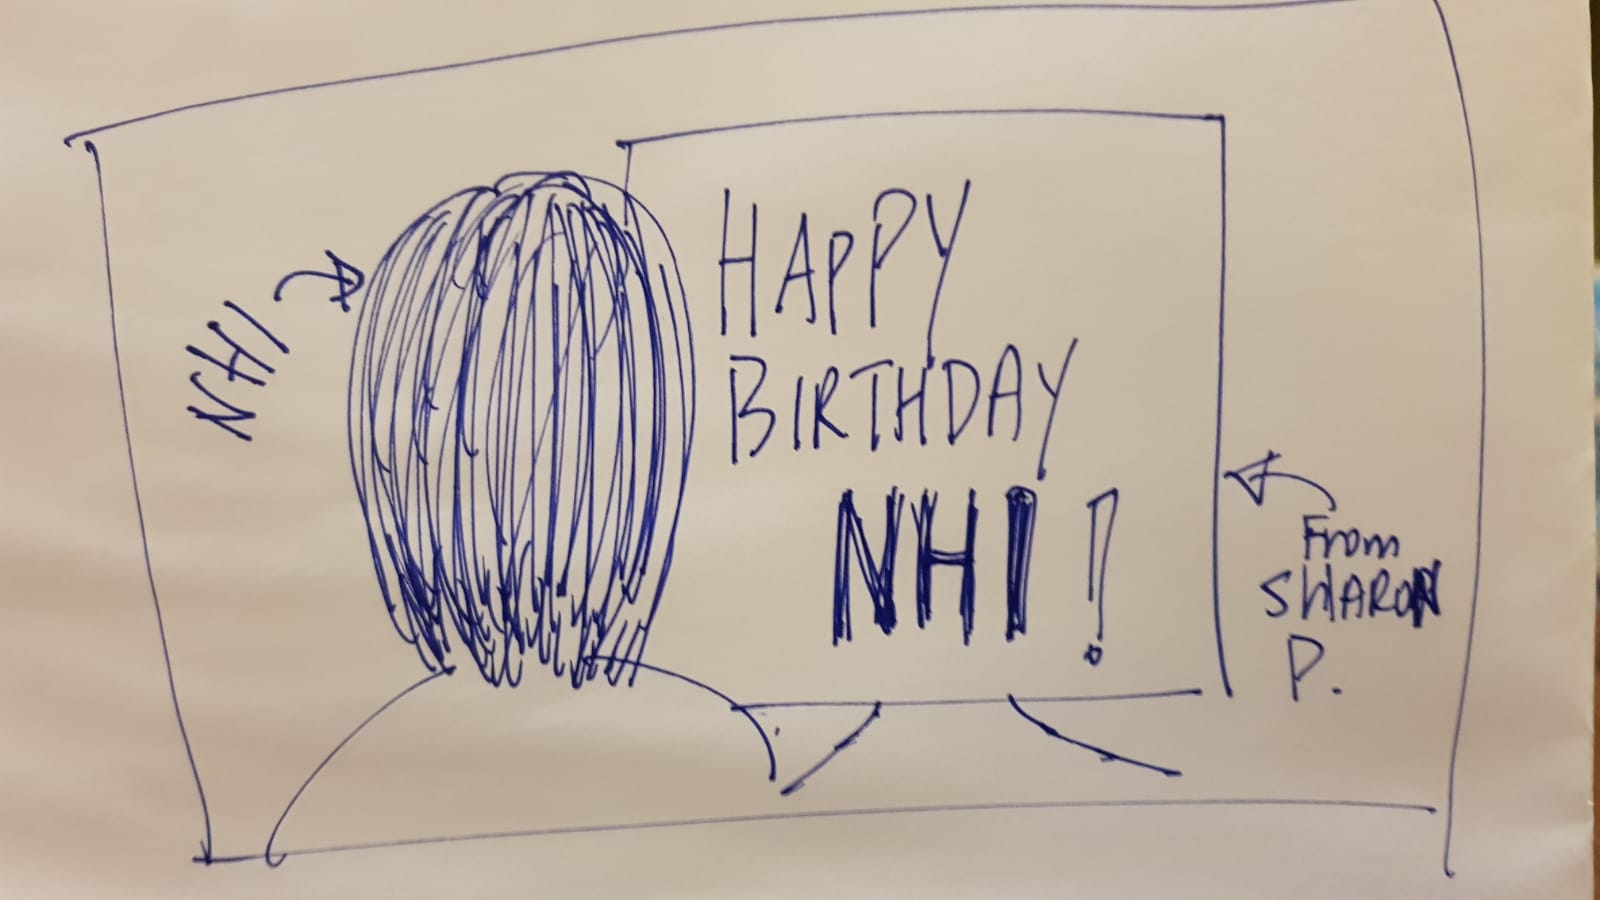 NHI
HAPPY
BIRTHDAY
NHI!
From
SHARON
P.